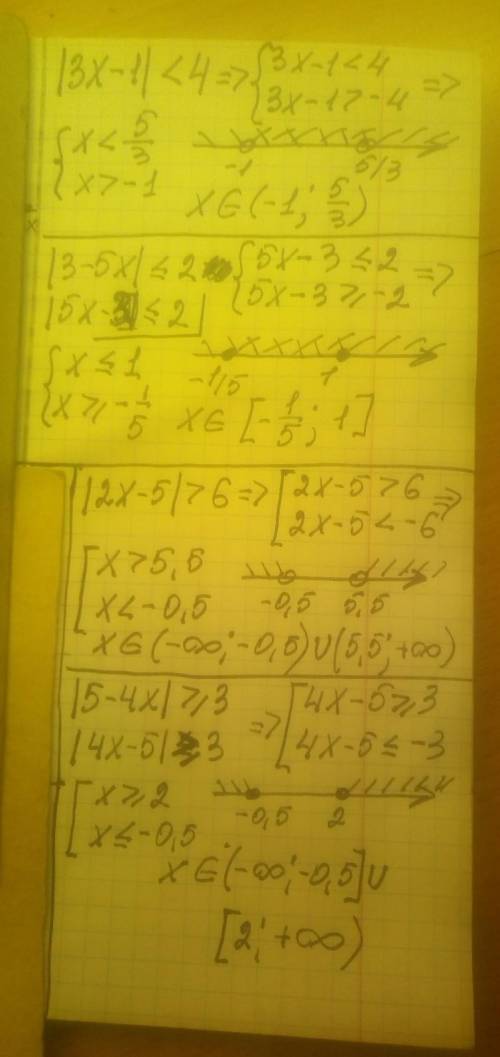 |3x-1| < 4 => { 3x-1 < 4
3x-1 > -4 =>
{ x < 5/3
x > -1
-1 5/3
x ∈ (-1; 5/3)
|3-5x| ≤ 2 { 5x-3 ≤ 2
|5x-3| ≤ 2 5x-3 ≥ -2 =>
{ x ≤ 1
x ≥ -1/5
-1/5 1
x ∈ [-1/5; 1]
|2x-5| > 6 => [ 2x-5 > 6
2x-5 < -6 =>
[ x > 5,5
x < -0,5
-0,5 5,5
x ∈ (-∞; -0,5) ∪ (5,5; +∞)
|5-4x| ≥ 3 => [ 4x-5 ≥ 3
|4x-5| ≥ 3 4x-5 ≤ -3
[ x ≥ 2
x ≤ -0,5
-0,5 2
x ∈ (-∞; -0,5] ∪
[2; +∞)